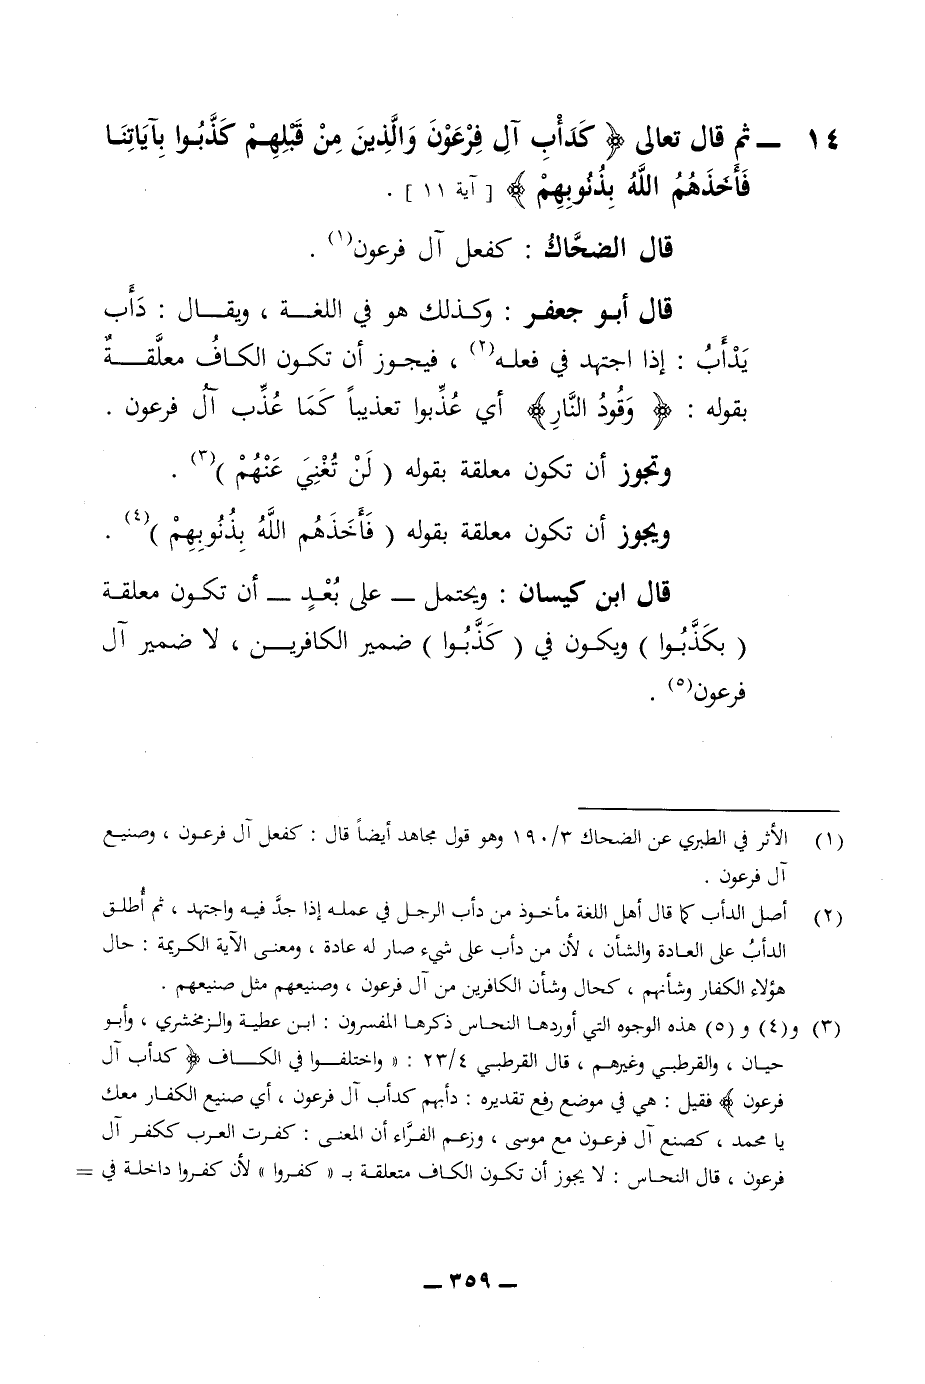 ١٤ ــ ثم قال تعالى ﴿ كَدَأْبِ آلِ فِرْعَوْنَ وَالَّذِينَ مِنْ قَبْلِهِمْ كَذَّبُوا بِآيَاتِنَا
فَأَخَذَهُمُ اللَّهُ بِذُنُوبِهِمْ ﴾ [ آية ١١ ] .
قال الضحَّاكُ : كفعل آل فرعون(١) .
قال أبو جعفر : وكذلك هو في اللغة ، ويقال : دَأَب
يَدْأَبُ : إذا اجتهد في فعله(٢) ، فيجوز أن تكون الكافُ معلَّقةٌ
بقوله : ﴿ وَقُودُ النَّارِ﴾ أي عُذِّبوا تعذيباً كَمَا عُذِّب آلُ فرعون .
وتجوز أن تكون معلقة بقوله ( لَنْ تُغْنِيَ عَنْهُمْ )(٣) .
ويجوز أن تكون معلقة بقوله ( فَأَخَذَهُم اللَّهُ بِذُنُوبِهِمْ )(٤) .
قال ابن كيسان : ويحتمل ــ على بُعْدٍ ــ أن تكون معلقة
( بكَذَّبُوا ) ويكون في ( كَذَّبُوا ) ضمير الكافرين ، لا ضمير آل
فرعون(٥) .
(١) الأثر في الطبري عن الضحاك ١٩٠/٣ وهو قول مجاهد أيضاً قال : كفعل آل فرعون ، وصنيع
آل فرعون .
(٢) أصل الدأب كما قال أهل اللغة مأخوذ من دأب الرجل في عمله إذا جدَّ فيه واجتهد ، ثم أُطلق
الدأبُ على العادة والشأن ، لأن من دأب على شيء صار له عادة ، ومعنى الآية الكريمة : حال
هؤلاء الكفار وشأنهم ، كحال وشأن الكافرين من آل فرعون ، وصنيعهم مثل صنيعهم .
(٣) و(٤) و (٥) هذه الوجوه التي أوردها النحاس ذكرها المفسرون : ابن عطية والزمخشري ، وأبو
حيان ، والقرطبي وغيرهم ، قال القرطبي ٢٣/٤ : « واختلفوا في الكاف ﴿ كدأب آل
فرعون ﴾ فقيل : هي في موضع رفع تقديره : دأبهم كدأب آل فرعون ، أي صنيع الكفار معك
يا محمد ، كصنع آل فرعون مع موسى ، وزعم الفرَّاء أن المعنى : كفرت العرب ككفر آل
فرعون ، قال النحاس : لا يجوز أن تكون الكاف متعلقة بـ « كفروا » لأن كفروا داخلة في =
ــ ٣٥٩ ــ